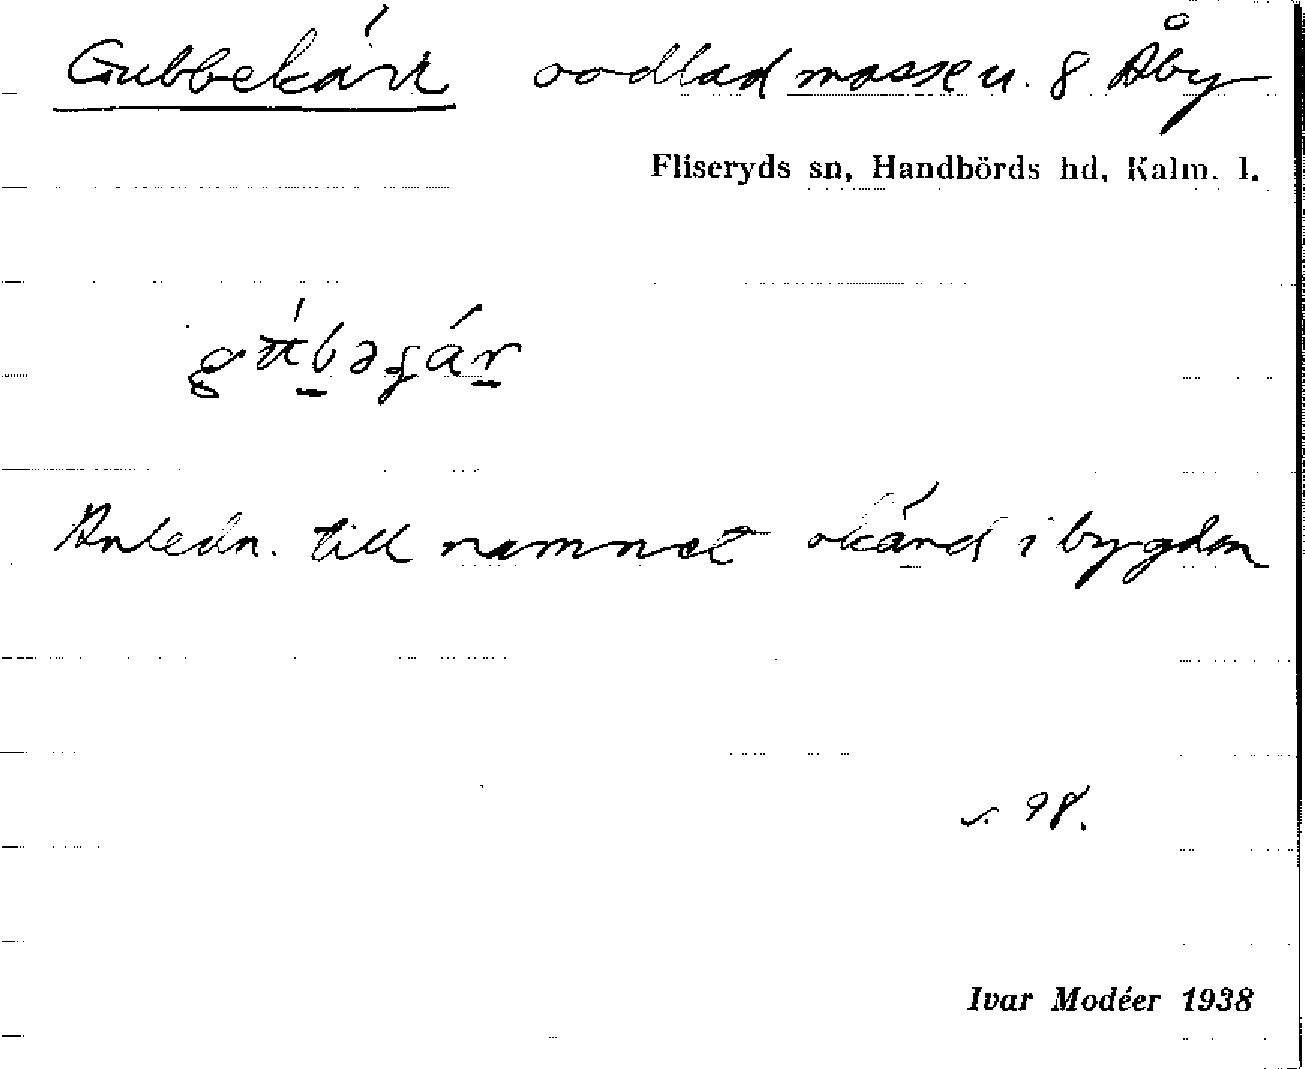 Gubbekärr oodlad mosse u. 8 Åby
Fliseryds sn, Handbörds hd, Kalm. l.
Anledn. till namnet okänd i bygden
s. 98.
Ivar Modéer 1938